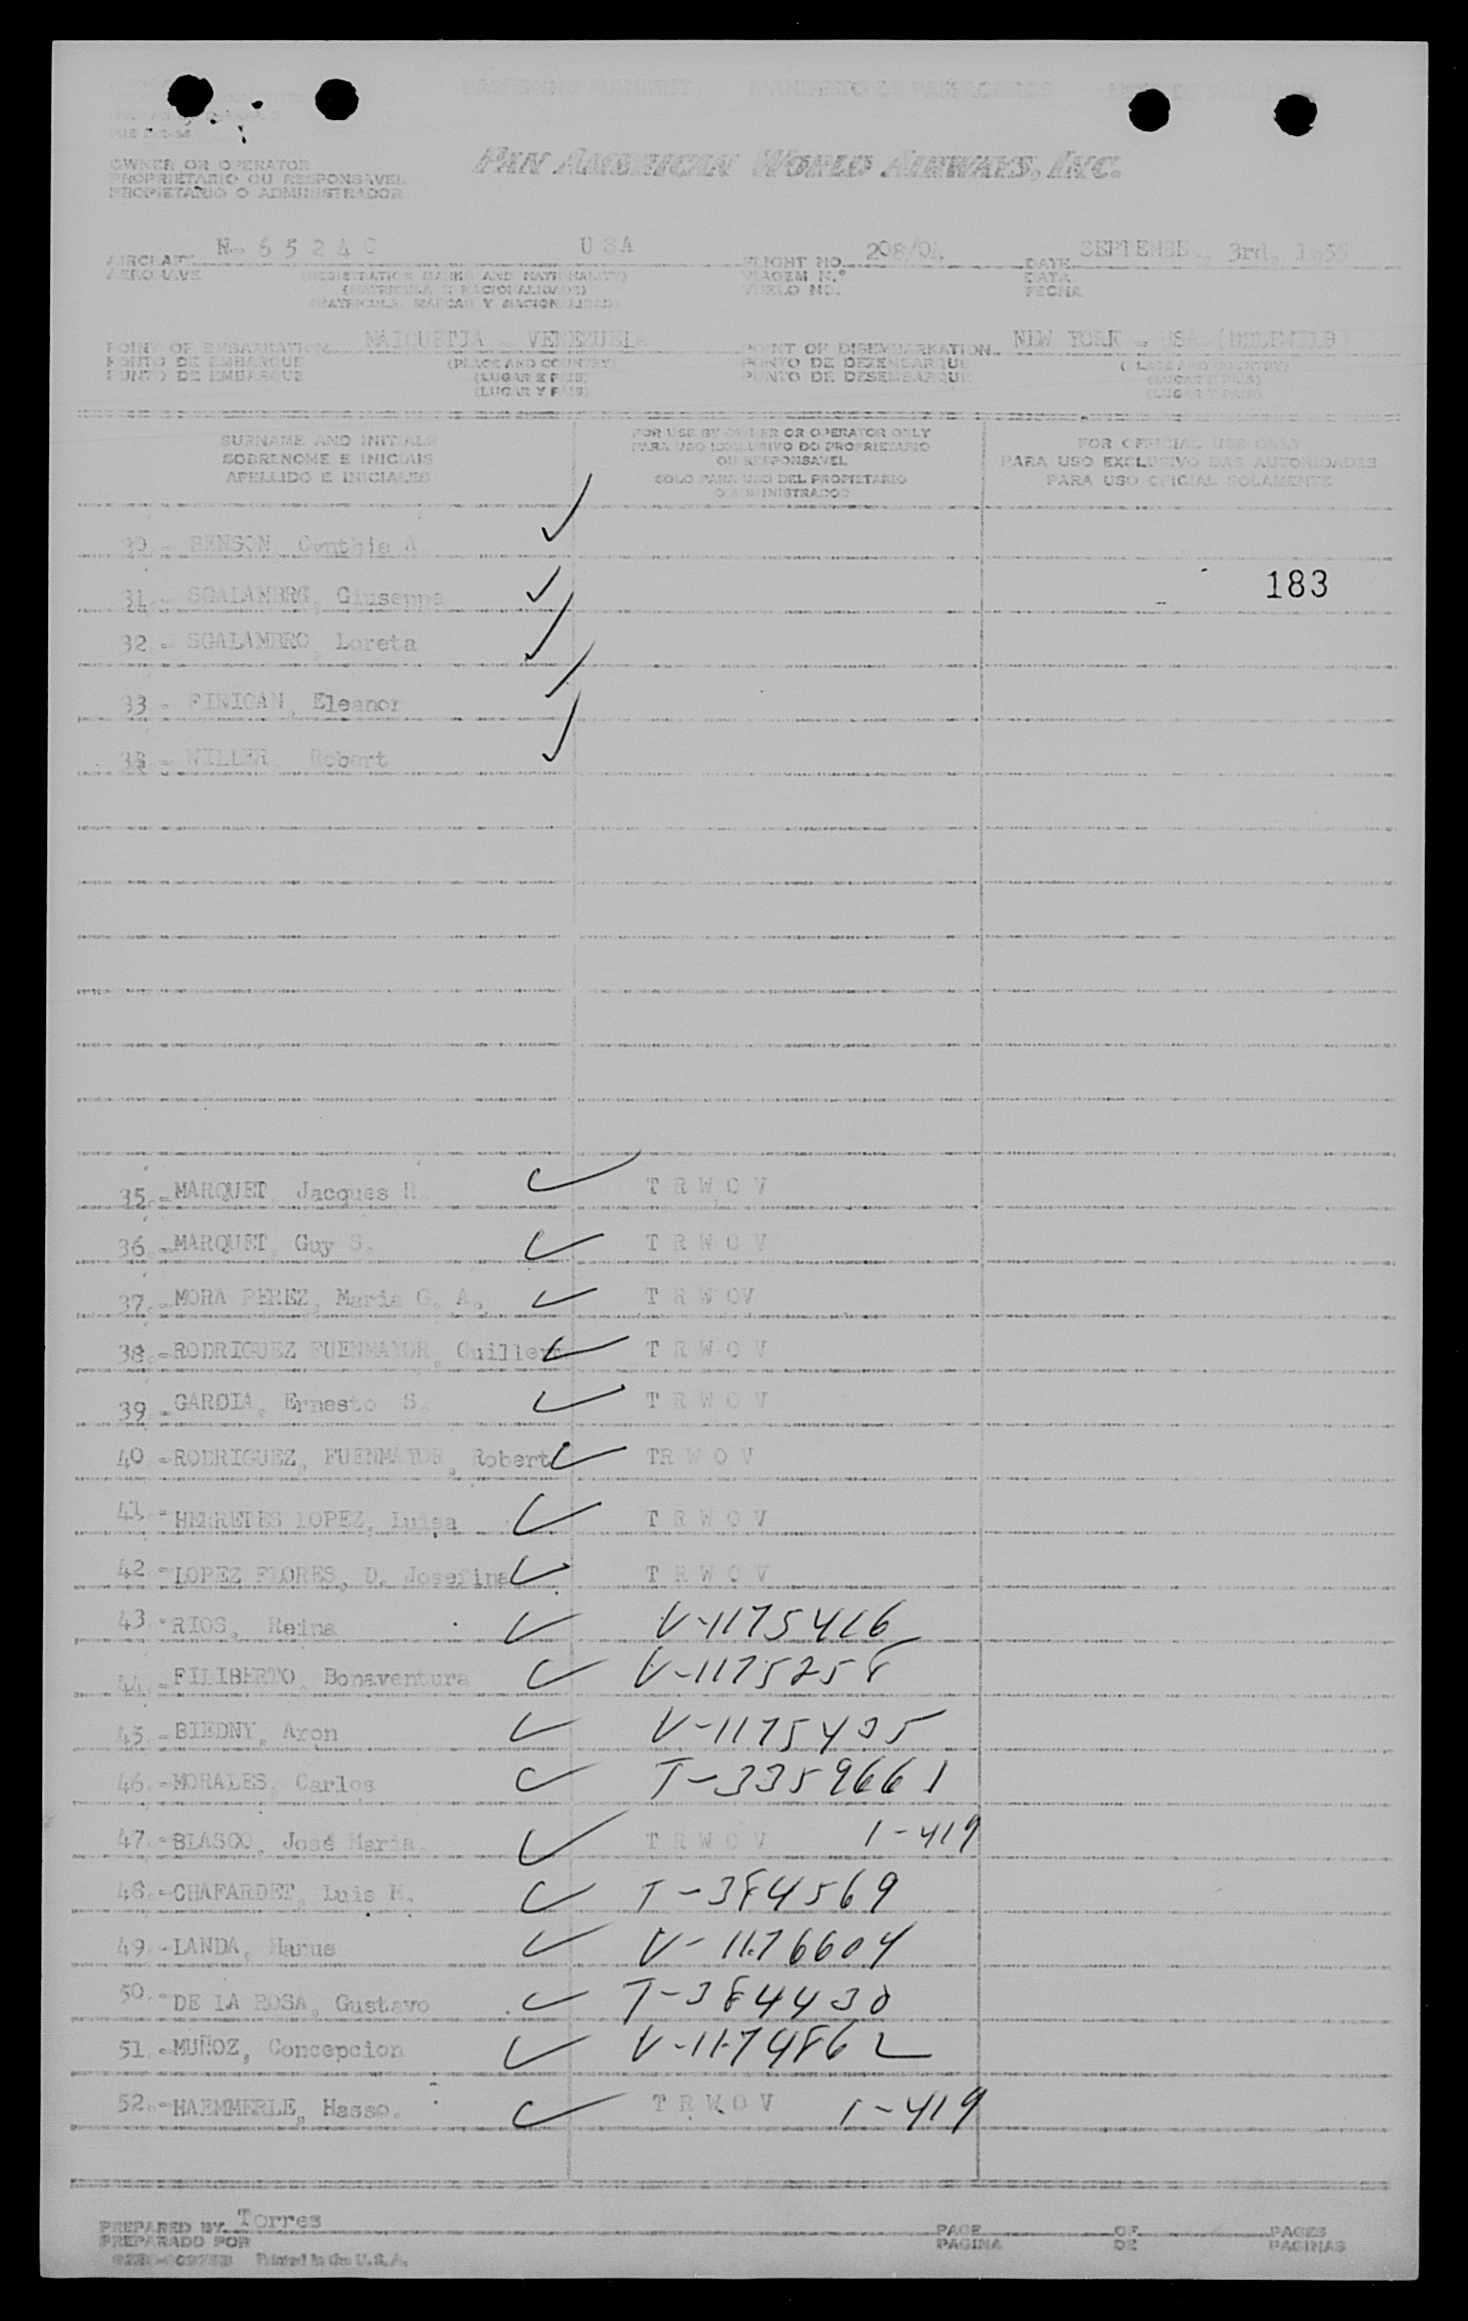 PASSENGER MANIFEST MANIFESTO DE PASAJEROS
OWNER OR OPERATOR
PROPRIETARIO OU RESPONSAVEL
PROPIETARIO O ADMINISTRADOR
PAN AMERICAN WORLD AIRWAYS, INC.
AIRCRAFT N- 6 5 2 4 C U S A FLIGHT NO. 208/04 DATE 3rd,
AERONAVE (REGISTRATION MARKS AND NATIONALITY) VIAGEM N.º DATA
(MATRICULA E NACIONALIDADE) VUELO NO. FECHA
(MATRICULA, MARCAS Y NACIONALIDAD)
POINT OF EMBARKATION MAIQUETIA - VENEZUELA POINT OF DISEMBARKATION NEW YORK - USA (IDLEWILD)
PONTO DE EMBARQUE (PLACE AND COUNTRY) PONTO DE DESEMBARQUE (PLACE AND COUNTRY)
PUNTO DE EMBARQUE (LUGAR E PAIS) PUNTO DE DESEMBARQUE (LUGAR E PAIS)
(LUGAR Y PAIS) (LUGAR Y PAIS)
SURNAME AND INITIALS
SOBRENOME E INICIAIS
APELLIDO E INICIALES
FOR USE BY OWNER OR OPERATOR ONLY
PARA USO EXCLUSIVO DO PROPRIETARIO
OU RESPONSAVEL
SOLO PARA USO DEL PROPIETARIO
O ADMINISTRADOR
FOR OFFICIAL USE ONLY
PARA USO EXCLUSIVO DAS AUTORIDADES
PARA USO OFICIAL SOLAMENTE
30.- BENSON Cynthia A
183
31.- SGALAMBRO, Giuseppe
32.- SGALAMBRO, Loreta
33.- FINICAN, Eleanor
Robert
35.-MARQUET, Jacques T R W O V
36.-MARQUET, Guy S. T R W O V
37.-MORA PEREZ, Maria G. A. T R W OV
38.-RODRIGUEZ FUENMAYOR, T R W O V
39.-GARCIA, Ernesto S. T R W O V
40.-RODRIGUEZ, FUENMAYOR, Robert TR W O V
41.- LOPEZ, Luisa T R W O V
42.-LOPEZ FLORES, D. Josefina T R W O V
43.-RIOS, Reina V-1175416
44.-FILIBERTO, Bonaventura V-1175258
45.-BIEDNY, Aron V-1175435
46.-MORALES, Carlos T-3359661
47.-BLASCO, José Maria. T R W O V 1-419
48.-CHAFARDET, Luis M. T-384569
49.-LANDA, V-1176604
50.-DE LA ROSA, Gustavo T-384430
51.-MUÑOZ, Concepcion V-1174862
52.-HAEMMERLE, Hasso. T R W O V 1-419
PREPARED BY Torres PAGE OF PAGES
PREPARADO POR PAGINA DE PAGINAS
Printed in the U.S.A.